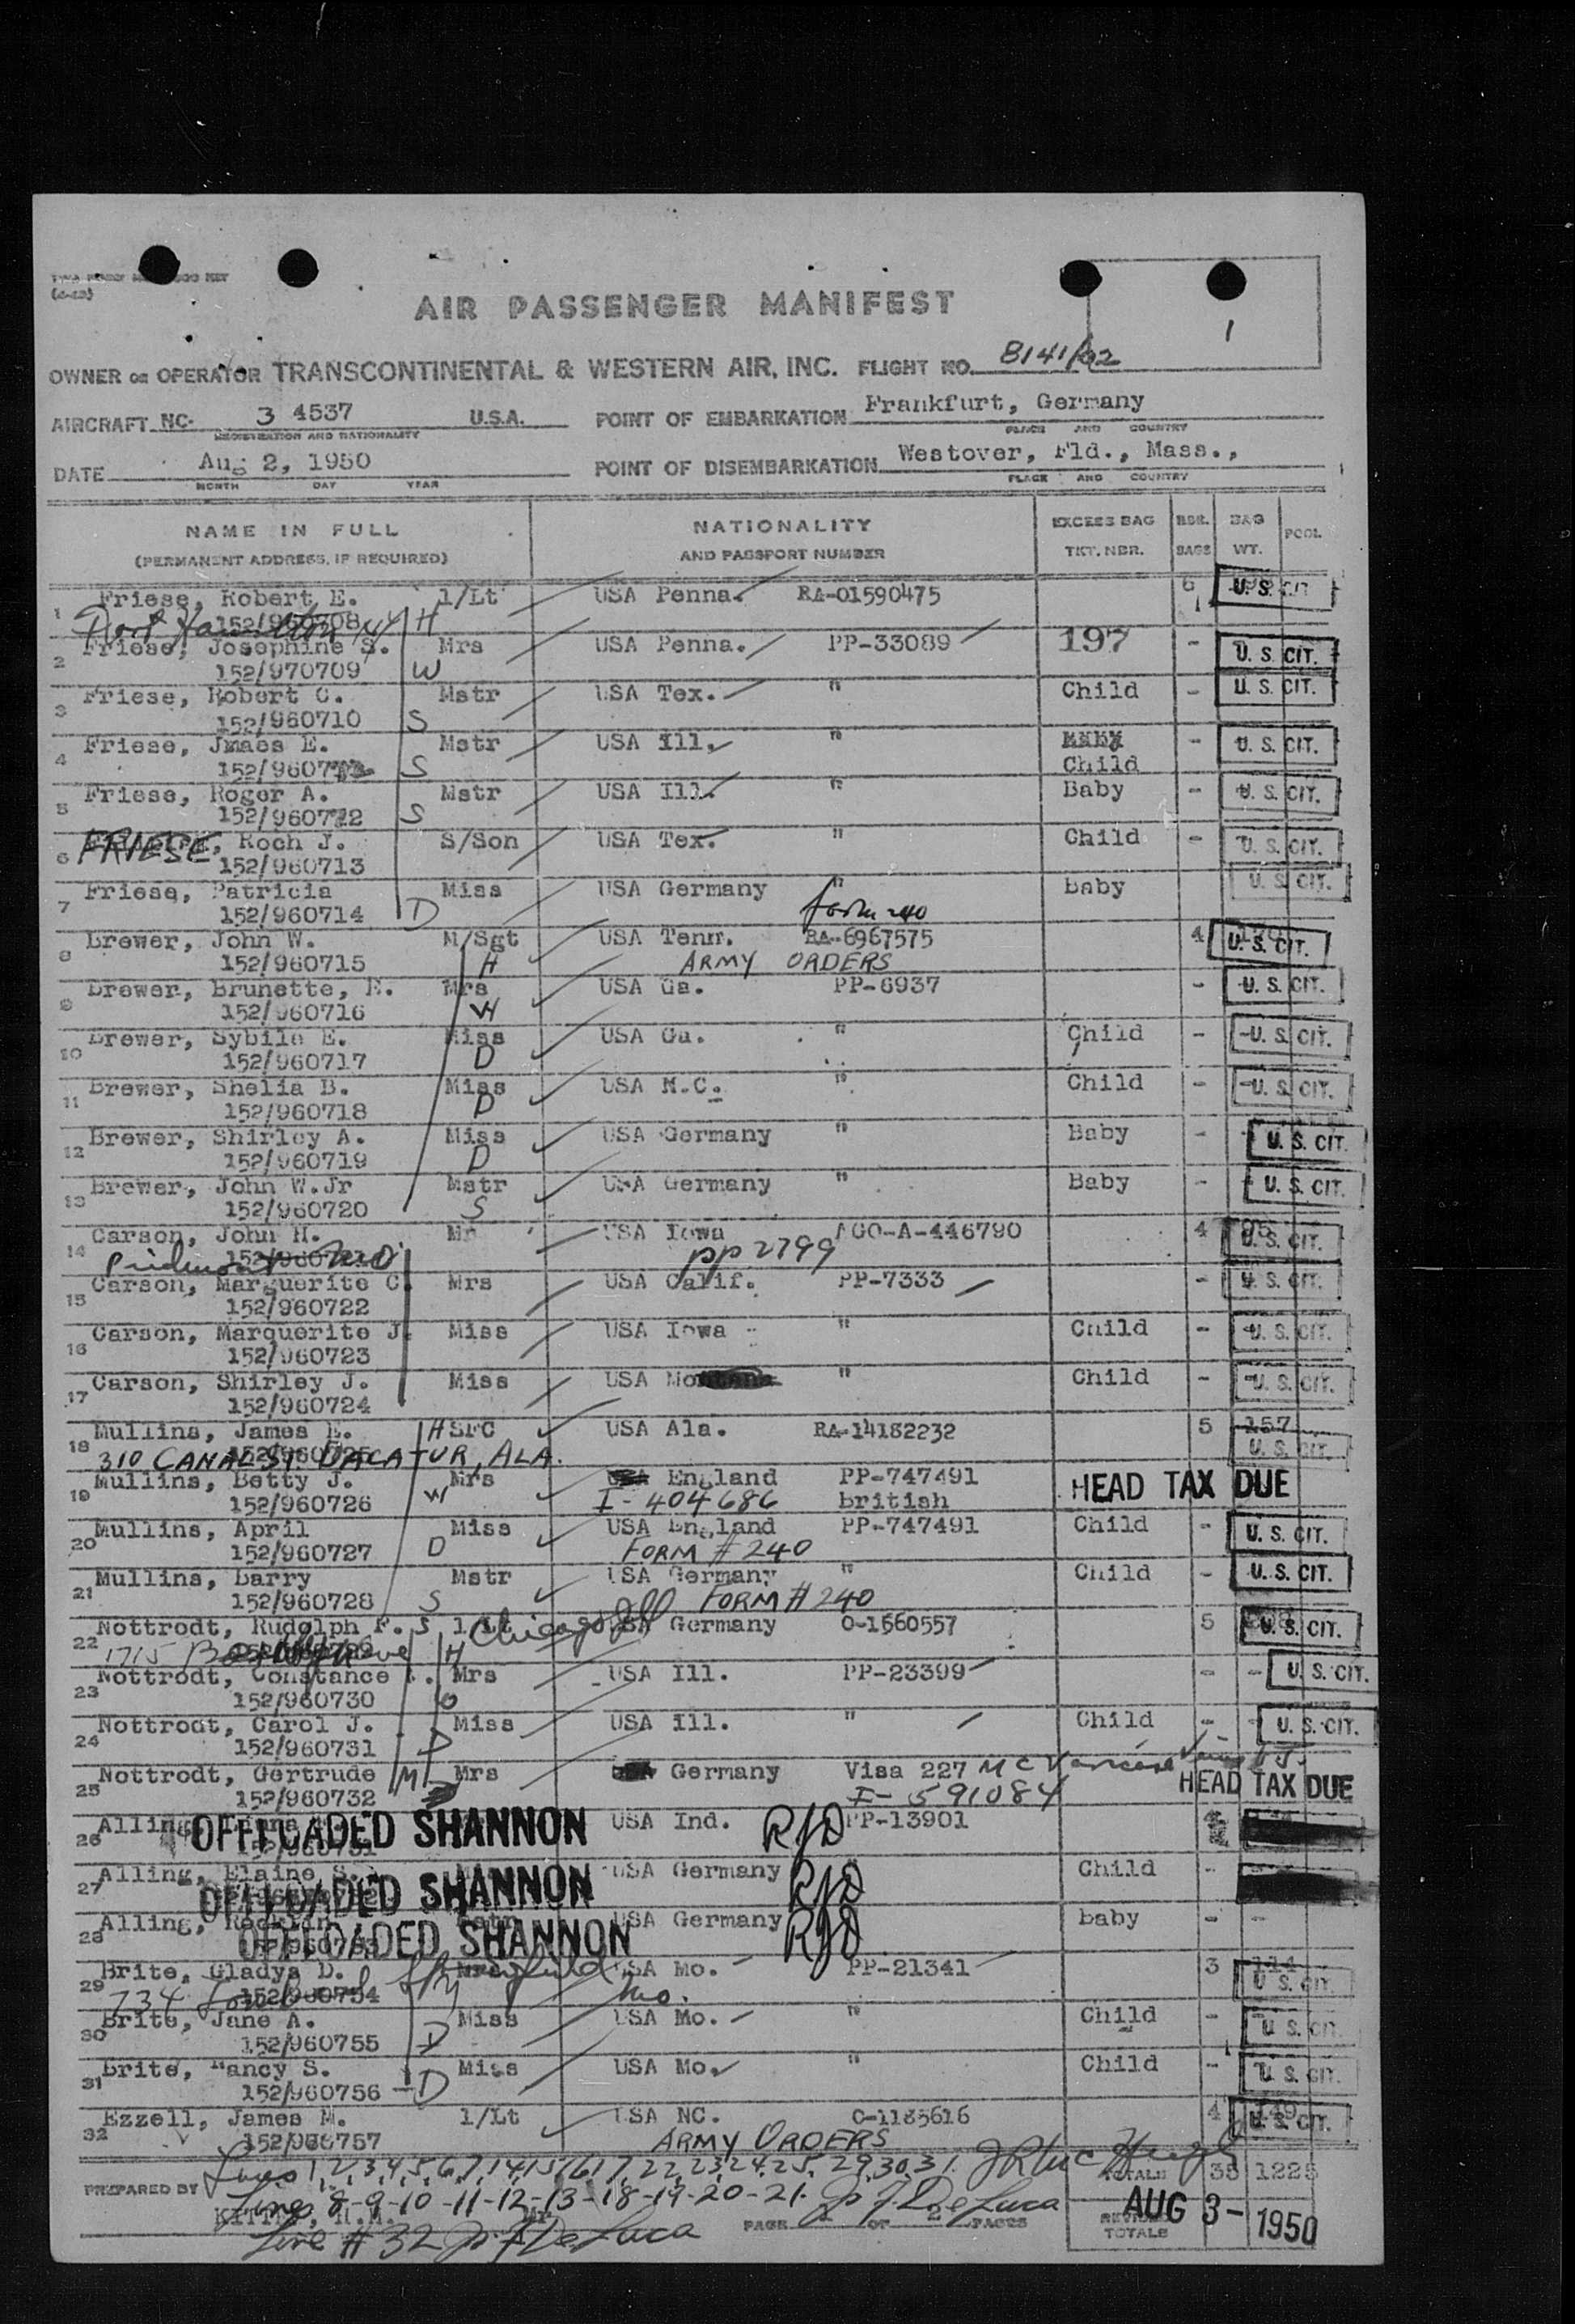 AIR PASSENGER MANIFEST
1
OWNER OR OPERATOR TRANSCONTINENTAL & WESTERN AIR, INC. FLIGHT NO. 8141/
AIRCRAFT NC- 3 4537 U.S.A. POINT OF EMBARKATION Frankfurt, Germany
REGISTRATION AND NATIONALITY PLACE AND COUNTRY
DATE Aug 2, 1950 POINT OF DISEMBARKATION Westover, Fld., Mass.,
MONTH DAY YEAR PLACE AND COUNTRY
NAME IN FULL NATIONALITY EXCESS BAG NBR. BAG POOL
(PERMANENT ADDRESS, IF REQUIRED) AND PASSPORT NUMBER TKT. NBR. BAGS WT.
1 Friese, Robert E. 1/Lt USA Penna. RA-01590475 6 U. S. CIT.
H
2 Friese, Josephine S. Mrs USA Penna. PP-33089 197 - U. S. CIT.
152/970709 W
3 Friese, Robert C. Mstr USA Tex. " Child - U. S. CIT.
152/960710 S
4 Friese, Jmaes E. Mstr USA Ill. " - U. S. CIT.
S Child
5 Friese, Roger A. Mstr USA Ill. " Baby - U. S. CIT.
152/960712 S
6 FRIESE, Roch J. S/Son USA Tex. " Child - U. S. CIT.
152/960713
7 Friese, Patricia Miss USA Germany " Baby U. S. CIT.
152/960714 D form 240
8 Brewer, John W. M/Sgt USA Tenn. RA-6967575 4 U. S. CIT.
152/960715 H ARMY ORDERS
9 Brewer, Brunette, E. Mrs USA Ga. PP-6937 - U. S. CIT.
152/960716 W
10 Brewer, Sybile E. Miss USA Ga. " Child - U. S. CIT.
152/960717 D
11 Brewer, Shelia B. Miss USA N.C. " Child - U. S. CIT.
152/960718 D
12 Brewer, Shirley A. Miss USA Germany " Baby - U. S. CIT.
152/960719 D
13 Brewer, John W.Jr Mstr USA Germany " Baby - U. S. CIT.
152/960720 S
14 Carson, John H. Mr USA Iowa AGO-A-446790 4 U. S. CIT.
pp 2799
15 Carson, Marguerite C. Mrs USA Calif. PP-7333 - U. S. CIT.
152/960722
16 Carson, Marguerite J. Miss USA Iowa " Child - U. S. CIT.
152/960723
17 Carson, Shirley J. Miss USA Mo " Child - U. S. CIT.
152/960724
18 Mullins, James E. H SFC USA Ala. RA-14182232 5 157
310 CANAL ST. DACATUR, ALA. U. S. CIT.
19 Mullins, Betty J. Mrs England PP-747491 HEAD TAX DUE
152/960726 W I-404686 British
20 Mullins, April Miss USA England PP-747491 Child - U. S. CIT.
152/960727 D FORM # 240
21 Mullins, Barry Mstr USA Germany " Child - U. S. CIT.
152/960728 S FORM # 240
22 Nottrodt, Rudolph F. 1/Lt Chicago Ill USA Germany O-1560557 5 U. S. CIT.
1715 H
23 Nottrodt, Constance Mrs USA Ill. PP-23399 - - U. S. CIT.
152/960730
24 Nottrodt, Carol J. Miss USA Ill. " Child - - U. S. CIT.
152/960731 D
25 Nottrodt, Gertrude M Mrs Germany Visa 227 HEAD TAX DUE
152/960732 I-591084
26 Alling, OFFLOADED SHANNON USA Ind. RJD PP-13901
27 Alling, Elaine S. OFFLOADED SHANNON USA Germany RJD Child -
28 Alling, OFFLOADED SHANNON USA Germany RJD Baby - -
29 Brite, Gladys D. Mrs USA Mo. PP-21341 3 114 U. S. CIT.
734 Springfield Mo.
30 Brite, Jane A. Miss USA Mo. " Child - U. S. CIT.
152/960755 D
31 Brite, Nancy S. Miss USA Mo. " Child - U. S. CIT.
152/960756 - D
32 Ezzell, James M. 1/Lt USA NC. O-1185616 4 149 U. S. CIT.
152/960757 ARMY ORDERS
Lines 1,2,3,4,5,6,7,14,15,16,17,22,23,24,25,29,30,31. TOTALS 35 1225
PREPARED BY Lines 8-9-10-11-12-13-18-19-20-21. J F DeLuca AUG 3 - 1950
Line # 32 J F DeLuca PAGE 1 OF 2 PAGES REVISED TOTALS